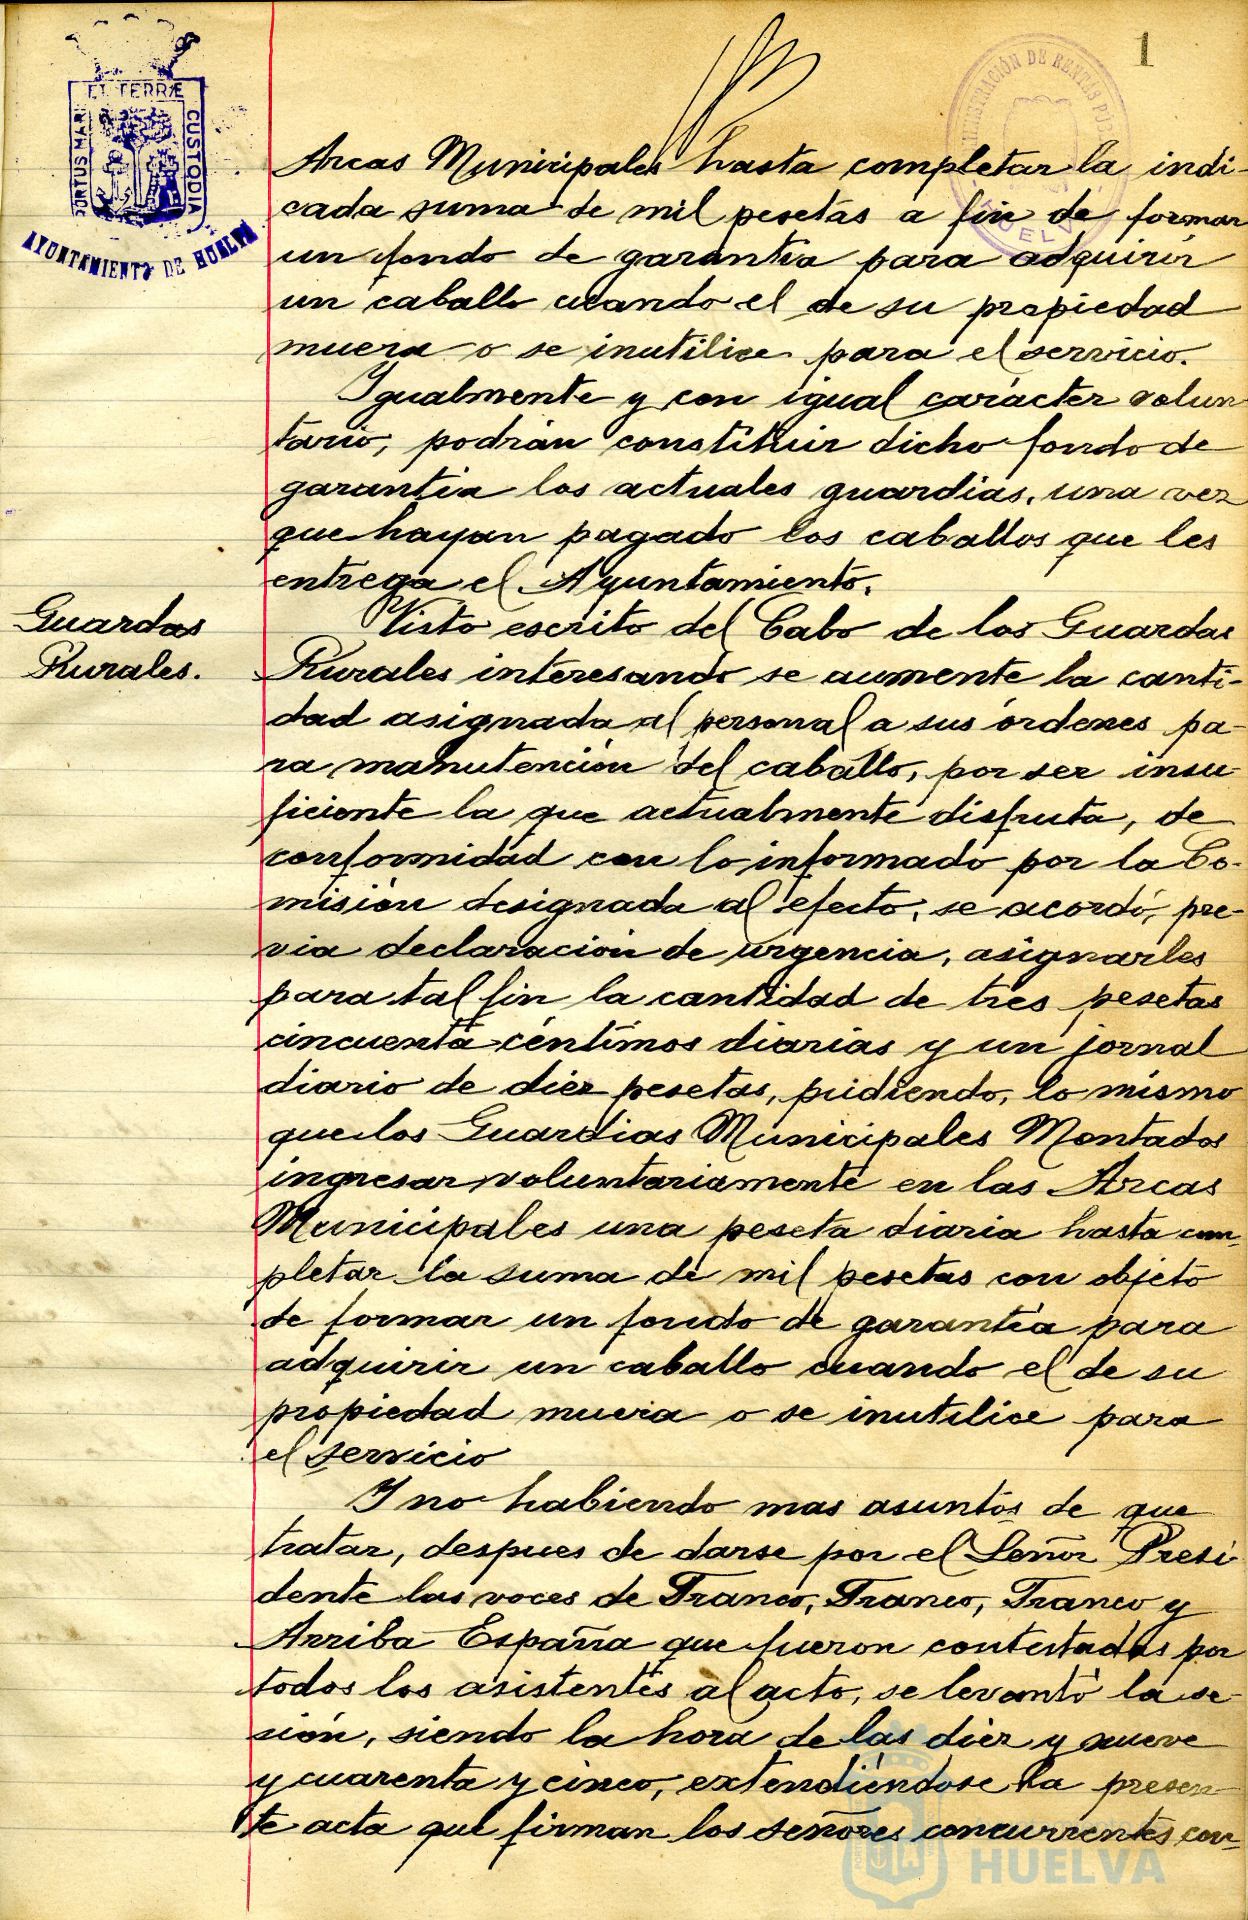 1
ET TERRÆ
PORTUS MARI
CUSTODIA
AYUNTAMIENTO DE HUELVA
ADMINISTRACIÓN DE RENTAS PÚBLICAS
HUELVA
Arcas Municipales hasta completar la indi-
cada suma de mil pesetas a fin de formar
un fondo de garantía para adquirir
un caballo cuando el de su propiedad
muera o se inutilice para el servicio.
Igualmente y con igual carácter volun-
tario, podrán constituir dicho fondo de
garantia los actuales guardias, una vez
que hayan pagado los caballos que les
entrega el Ayuntamiento.
Guardas
Rurales.
Visto escrito del Cabo de los Guardas
Rurales interesando se aumente la canti-
dad asignada al personal a sus órdenes pa-
ra manutención del caballo, por ser insu-
ficiente la que actualmente disfruta, de
conformidad con lo informado por la Co-
misión designada al efecto, se acordó, pre-
via declaración de urgencia, asignarles
para tal fin la cantidad de tres pesetas
cincuenta céntimos diarias y un jornal
diario de diez pesetas, pudiendo, lo mismo
que los Guardias Municipales Montados
ingresar voluntariamente en las Arcas
Municipales una peseta diaria hasta com-
pletar la suma de mil pesetas con objeto
de formar un fondo de garantía para
adquirir un caballo cuando el de su
propiedad muera o se inutilice para
el servicio
Y no habiendo mas asuntos de que
tratar, despues de darse por el Señor Presi
dente las voces de Franco, Franco, Franco y
Arriba España que fueron contestadas por
todos los asistentes al acto, se levantó la se-
sión, siendo la hora de las diez y nueve
y cuarenta y cinco, extendiéndose la presen-
te acta que firman los señores concurrentes con-
HUELVA